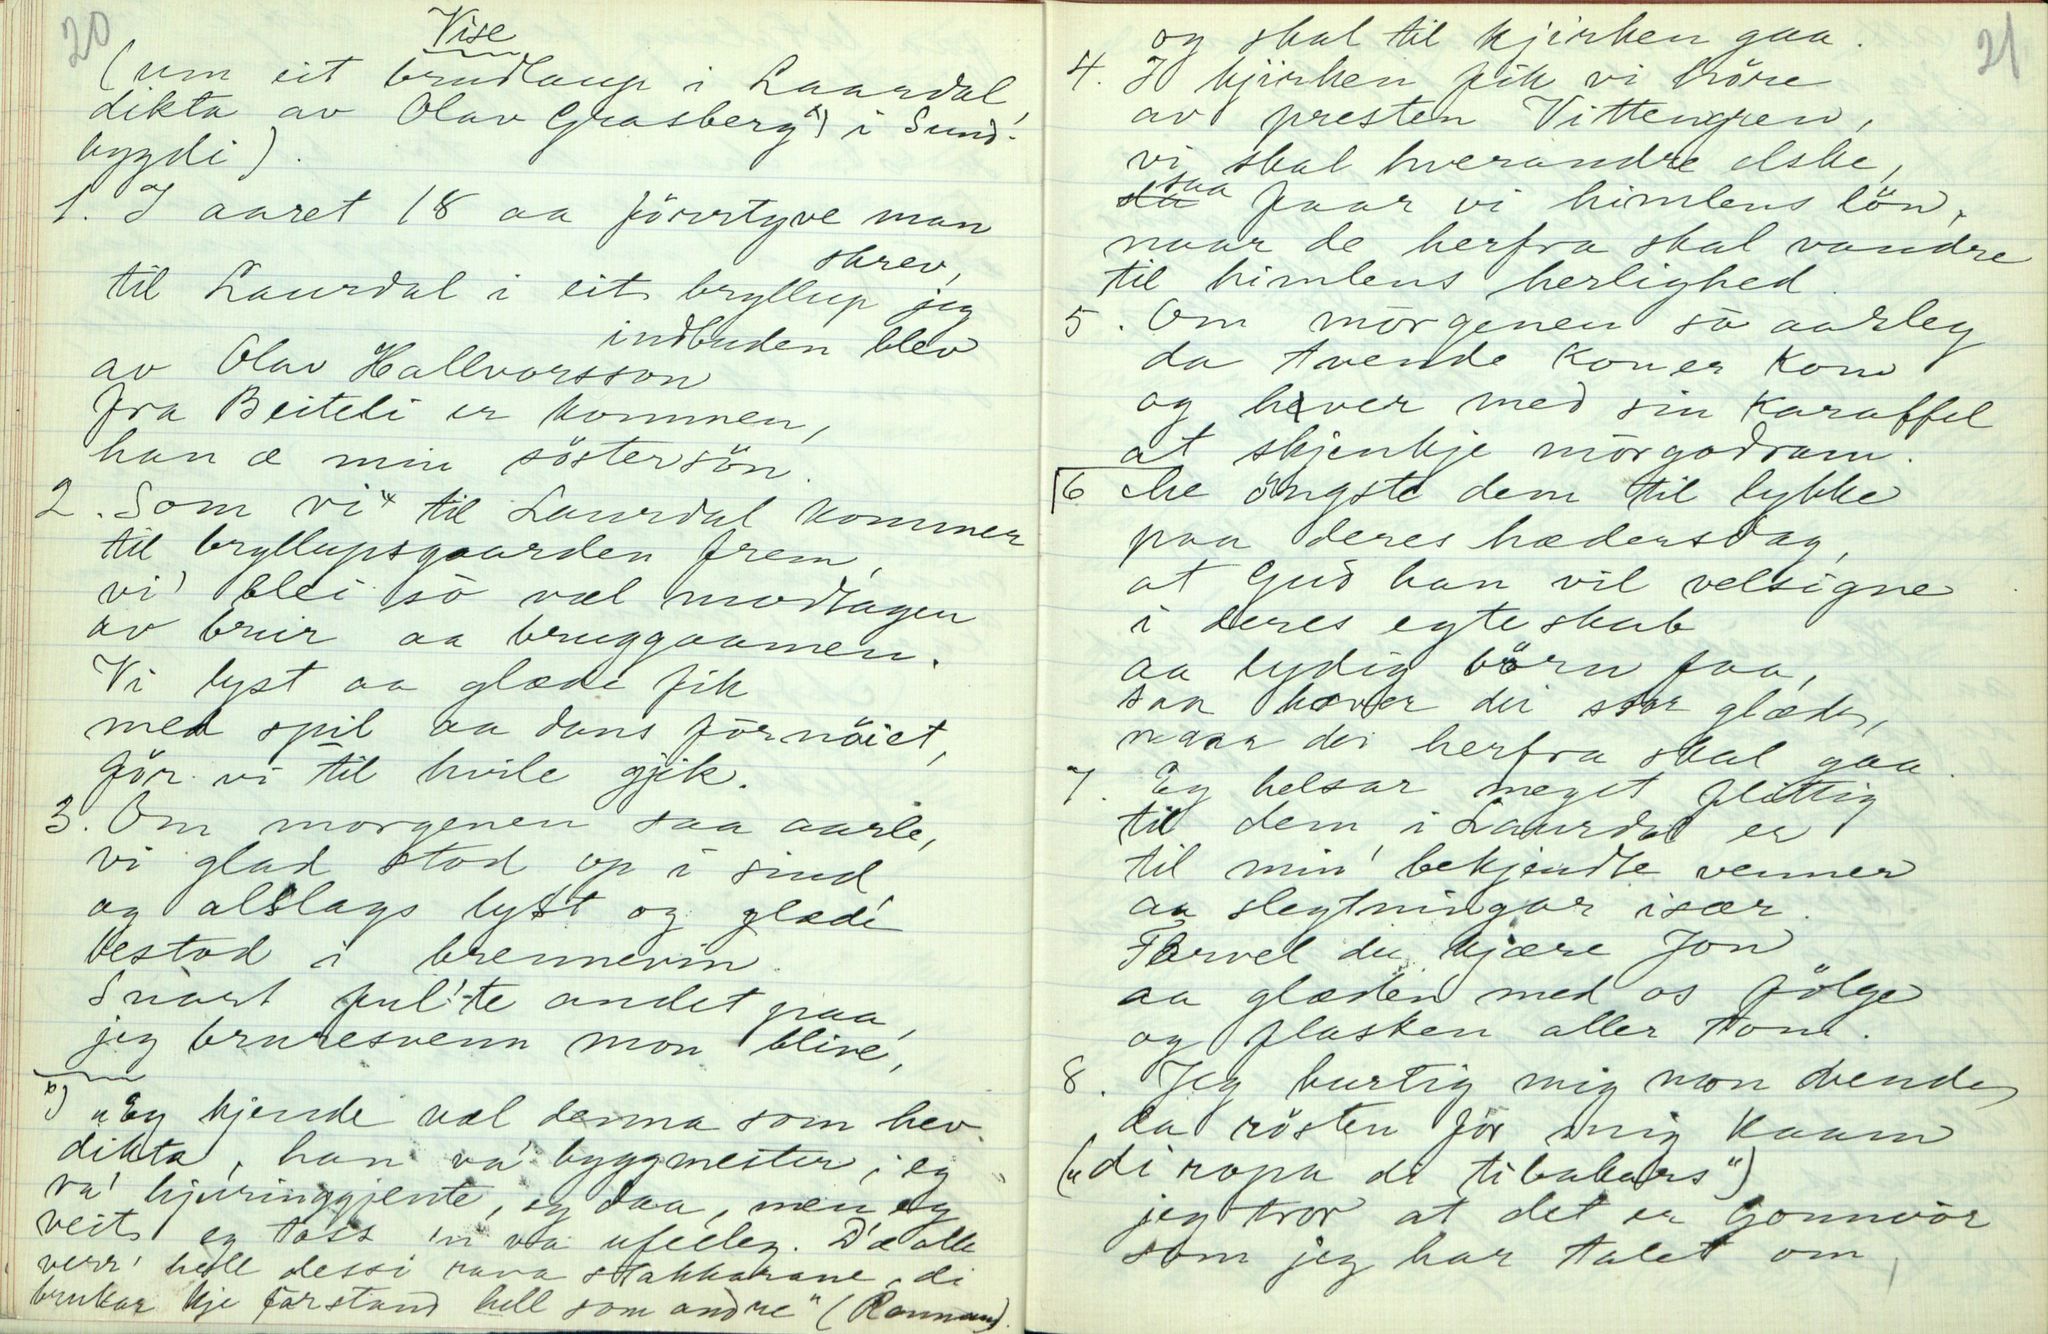 20
Vise
(um eit brudlaup i Laardal,
dikta av Olav Grasberg x) i Sund-
bygdi).
1. I aaret 18 aa förrtyve man
skrev,
til Laurdal i eit bryllup jeg
indbuden blev
av Olav Hallvorsson
fra Beiteli er kommen,
han æ min söstersön.
2. Som vi til Laurdal kommer
til bryllupsgaarden frem,
vi blei so væl modtagen
av bruir aa bruggaamen.
Vi lyst aa glæde fik
med spil aa dans fornöiet,
för vi til hvile gjik.
3. Om morgenen saa aarle,
vi glad stod op i sind
og alslags lyst og glædi
bestod i brennevin.
Snart ful'te andet paa,
jeg bruresvenn mon blive,
x) "Eg kjende væl denna som hev
dikta, han va' byggmester, eg
va' hjuringgjente, eg daa, men eg
veit eg toss 'n va ufeeleg. D'æ alle
verr' hell dessi rava stakkarane, di
brukar kje forstand hell som andre" (Rannan).
21
og skal til kjirken gaa.
4. I kjirken fik vi höre
av presten Vittengren,
vi skal hverandre elske,
saa faar vi himlens lön,
naar de herfra skal vandre
til himlens herlighed.
5. Om morgenen so aarleg
da tvende koner kom
og hver med sin karaffel
at skjenkje morgodram.
6 De öngste dem til lykke
paa deres hædersdag,
at Gud han vil velsigne
i deres egteskab
aa lydig börn faa,
saa haver dei stor glæde,
naar dei herfra skal gaa.
7. Eg helsar meget flittig
til dem i Laurdal er
til min bekjendte venner
aa slegtningar især.
Farvel du kjære Jon
aa glæden med os fölge
og flasken aller tom.
8. Jeg hurtig mig mon vende
da rösten for mig kaam
("di ropa di tibakars")
jeg tror at det er Gonnvor
som jeg har talet om,